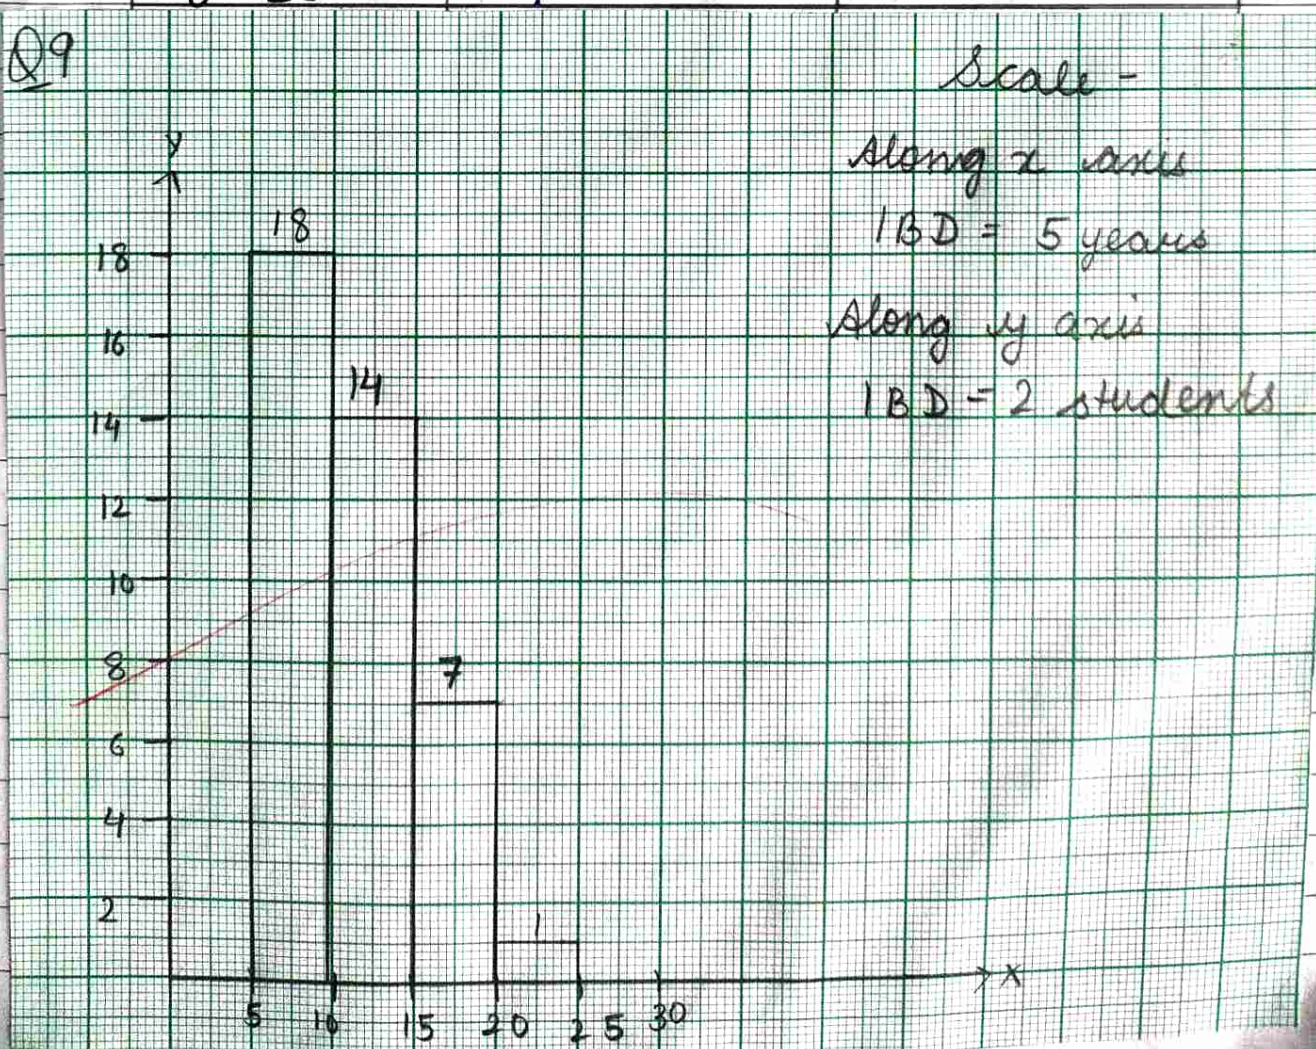 Q9
Scale -
Along x axis
1BD = 5 years
Along y axis
1BD = 2 students
Y
18
18
16
14
14
12
10
8
7
6
4
2
1
X
5 10 15 20 25 30